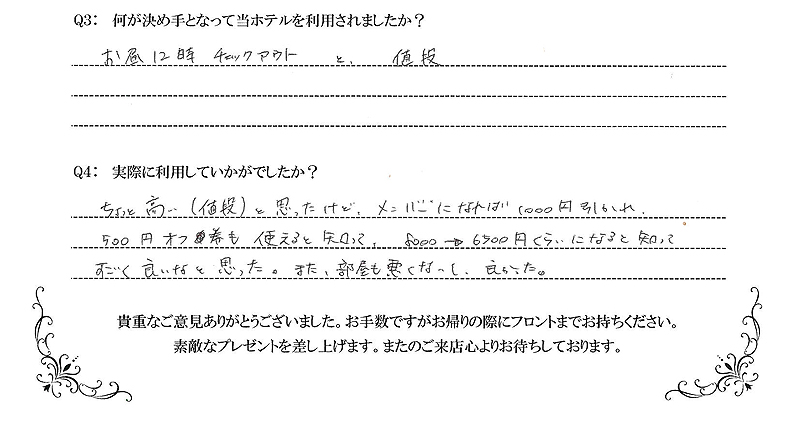 Q3: 何が決め手となって当ホテルを利用されましたか？
お昼12時 チェックアウト と、 値段
Q4: 実際に利用していかがでしたか？
ちょっと 高い (値段) と 思ったけど、メンバーになれば 1000円 引かれ、
500円 オフ 券も 使えると 知って、 8000 → 6500円くらいになると 知って
すごく 良いなと 思った。また、部屋も 悪くなっし、良かった。
貴重なご意見ありがとうございました。お手数ですがお帰りの際にフロントまでお持ちください。
素敵なプレゼントを差し上げます。またのご来店心よりお待ちしております。